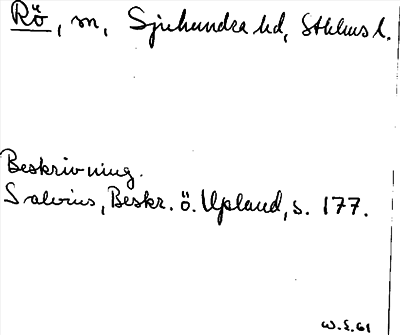 Rö, sn, Sjuhundra hd, Sthlms l.
Beskrivning.
Salvius, Beskr. ö. Upland, s. 177.
W.E.61